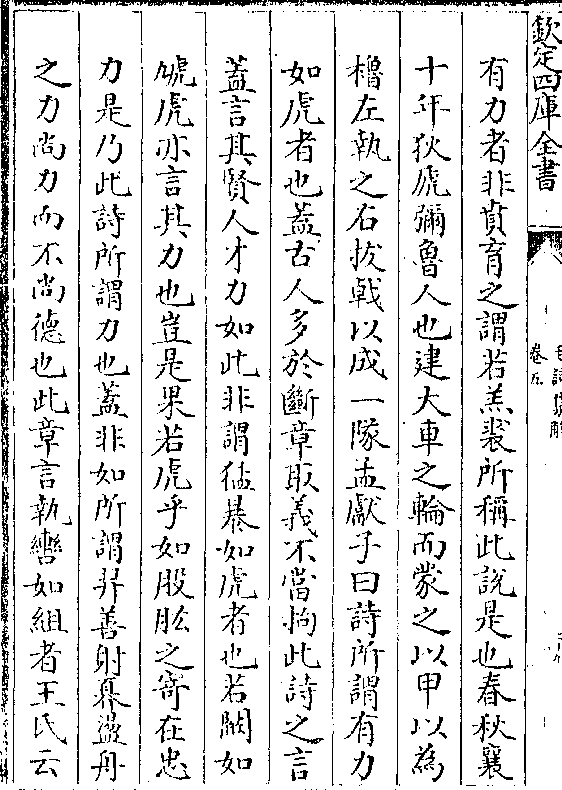 欽定四庫全書
卷五
有力者非賁育之謂若羔裘所稱此說是也春秋襄
十年狄虒彌魯人也建大車之輪而蒙之以甲以為
櫓左執之右拔戟以成一隊孟獻子曰詩所謂有力
如虎者也蓋古人多於斷章取義不當拘此詩之言
蓋言其賢人才力如此非謂猛暴如虎者也若闞如
虓虎亦言其力也豈是果若虎乎如股肱之寄在忠
力是乃此詩所謂力也蓋非如所謂羿善射奡盪舟
之力尚力而不尚德也此章言執轡如組者王氏云